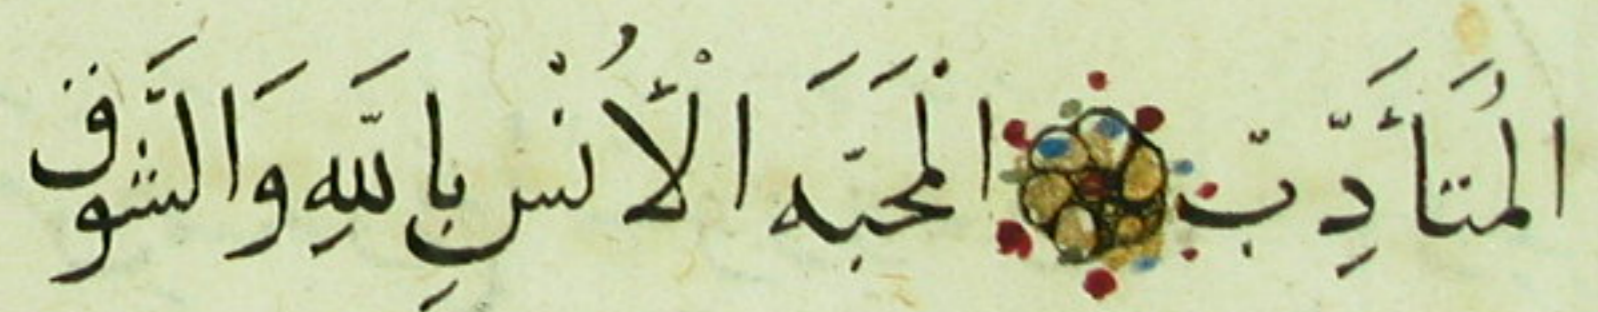 الْمُتَأَدِّبِ الْمَحَبَّه الْأُنْسِ بِاللَّهِ وَالشَّوْقِ